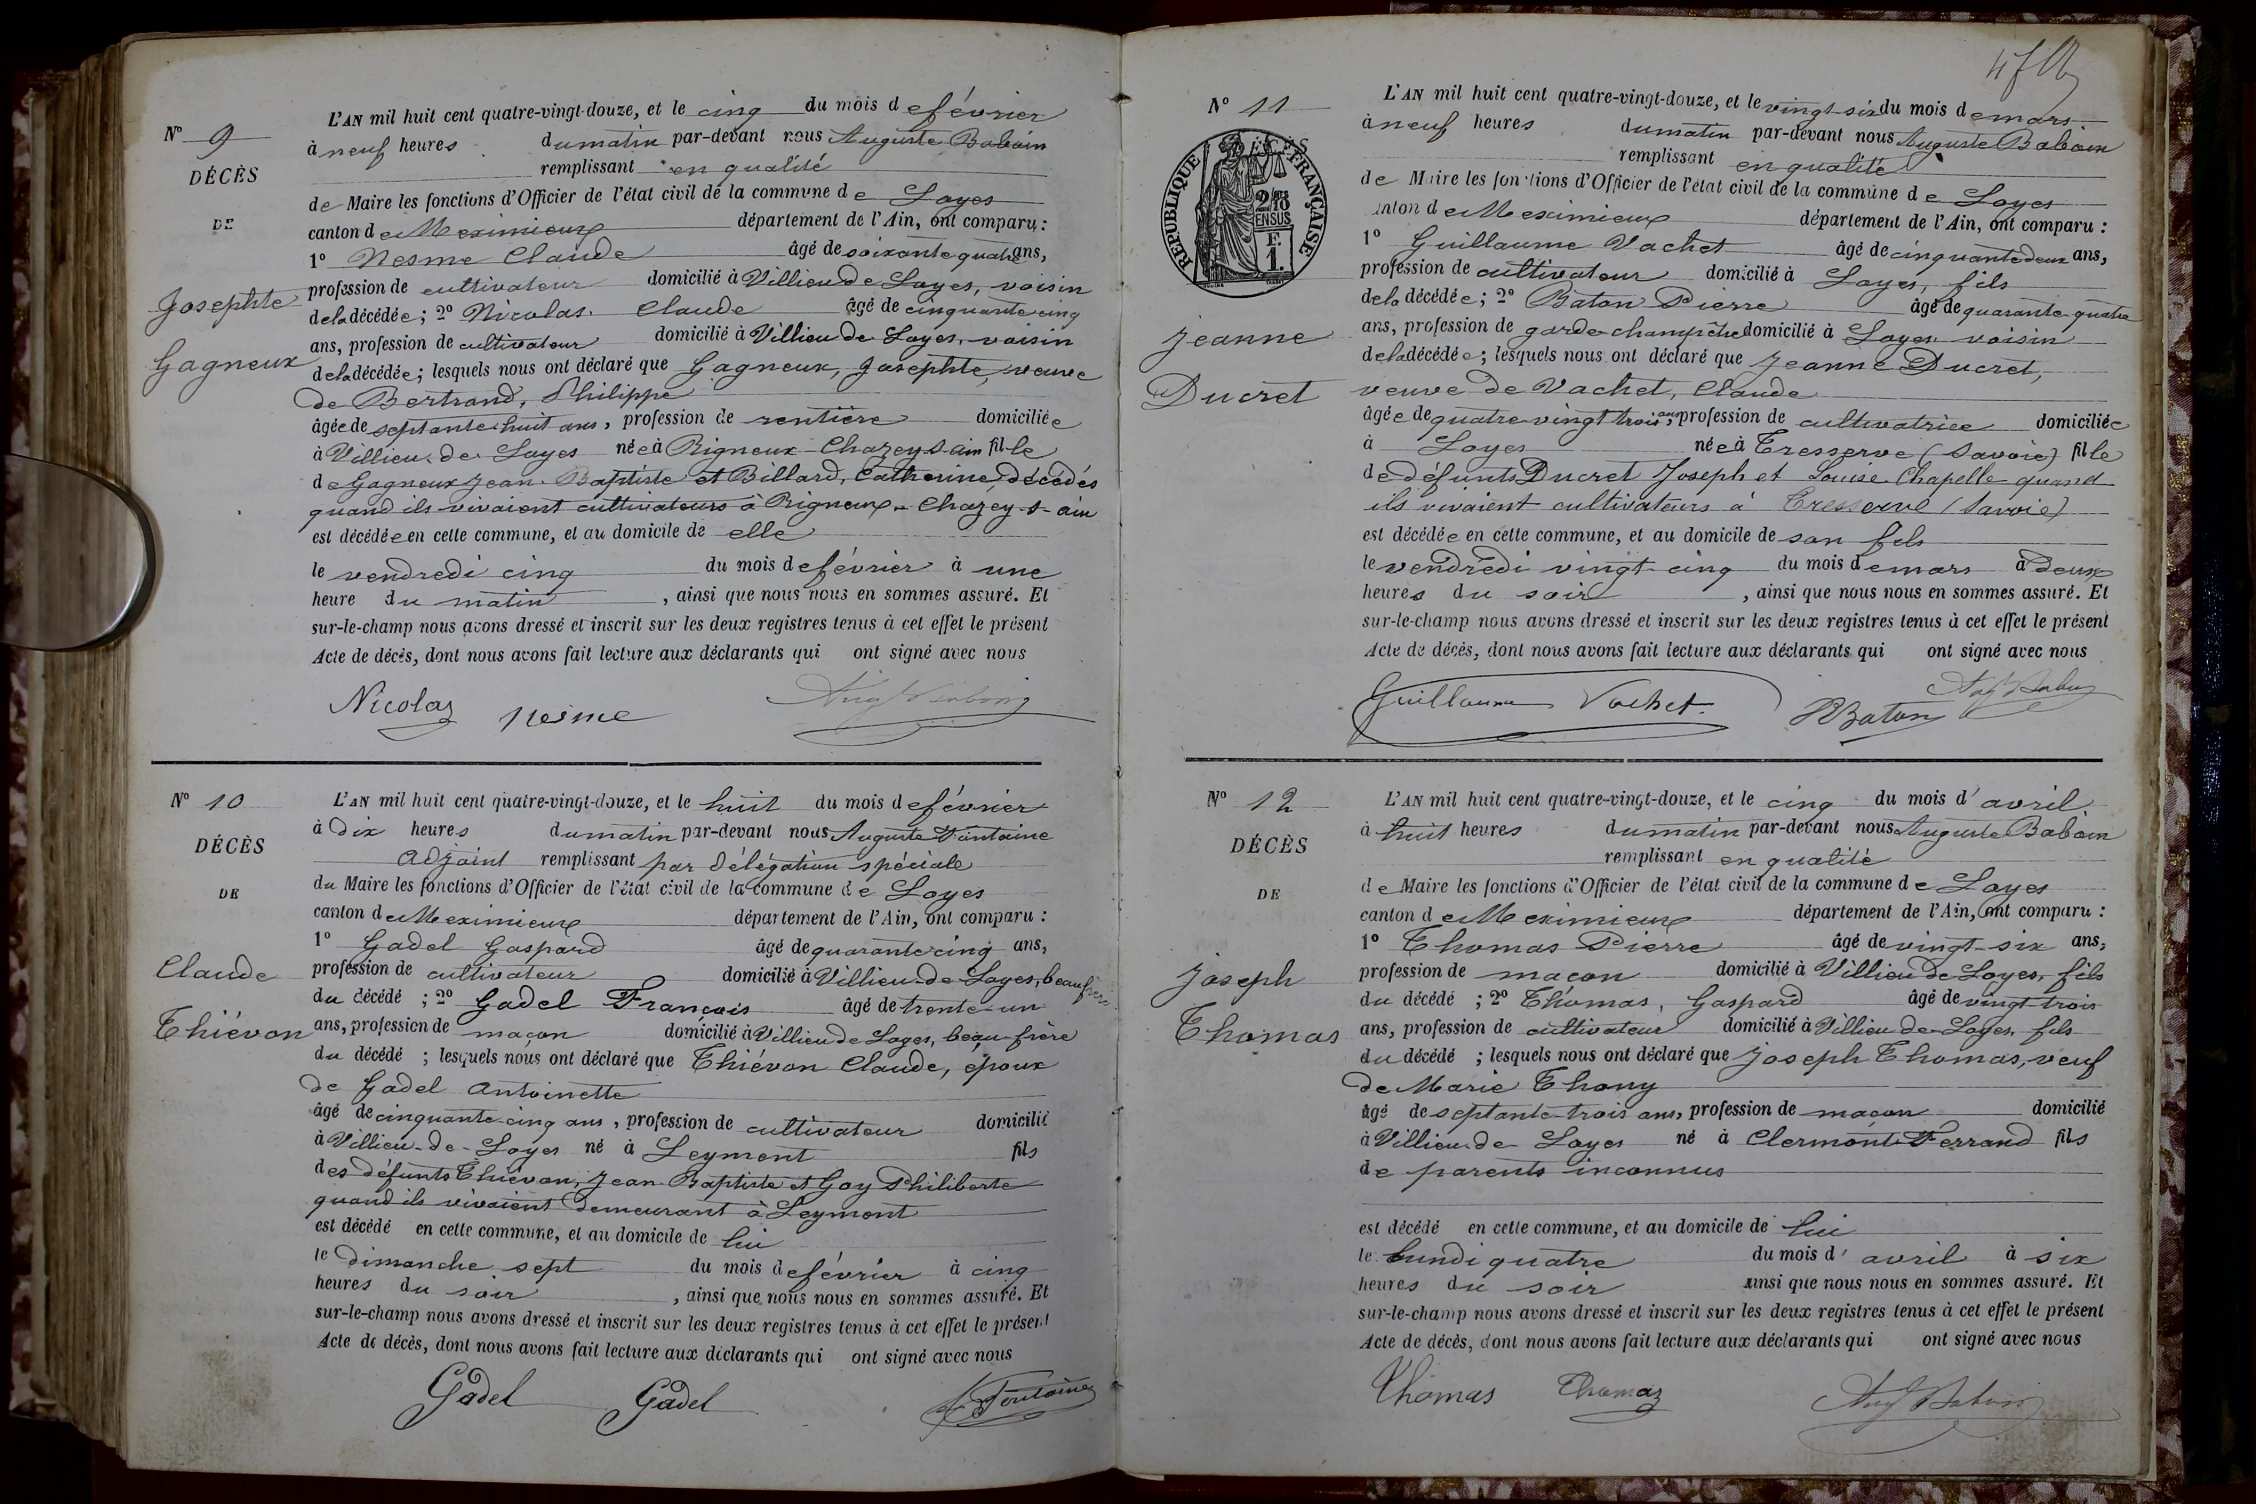 N° 9
DÉCÈS
DE
Josephte
Gagneux
L'AN mil huit cent quatre-vingt-douze, et le cinq du mois de février
à neuf heures du matin par-devant nous Auguste Baboin
remplissant en qualité
de Maire les fonctions d'Officier de l'état civil de la commune de Loyes
canton de Meximieux département de l'Ain, ont comparu :
1° Nesme Claude âgé de soixante quatre ans,
profession de cultivateur domicilié à Villieu de Loyes, voisin
de la décédée ; 2° Nicolas Claude âgé de cinquante cinq
ans, profession de cultivateur domicilié à Villieu de Loyes, voisin
de la décédée ; lesquels nous ont déclaré que Gagneux, Josephte, veuve
de Bertrand, Philippe
âgée de septante huit ans, profession de rentière domiciliée
à Villieu-de-Loyes née à Rigneux-Chazey-s-ain fille
de Gagneux Jean-Baptiste et Billard, Catherine, décédés
quand ils vivaient cultivateurs à Rigneux-Chazey-s-ain
est décédée en cette commune, et au domicile de elle
le vendredi cinq du mois de février à une
heure du matin, ainsi que nous nous en sommes assuré. Et
sur-le-champ nous avons dressé et inscrit sur les deux registres tenus à cet effet le présent
Acte de décès, dont nous avons fait lecture aux déclarants qui ont signé avec nous
Nicolas Nesme Aug Baboin
N° 10
DÉCÈS
DE
Claude
Thiévon
L'AN mil huit cent quatre-vingt-douze, et le huit du mois de février
à dix heures du matin par-devant nous Auguste Fontaine
adjoint remplissant par délégation spéciale
du Maire les fonctions d'Officier de l'état civil de la commune de Loyes
canton de Meximieux département de l'Ain, ont comparu :
1° Gadel Gaspard âgé de quarante cinq ans,
profession de cultivateur domicilié à Villieu-de-Loyes, beau frère
du décédé ; 2° Gadel François âgé de trente-un
ans, profession de maçon domicilié à Villieu de Loyes, beau-frère
du décédé ; lesquels nous ont déclaré que Thiévon Claude, époux
de Gadel Antoinette
âgé de cinquante-cinq ans, profession de cultivateur domicilié
à Villieu-de-Loyes né à Leyment fils
des défunts Thiévon, Jean-Baptiste et Goy Philiberte
quand ils vivaient demeurant à Leyment
est décédé en cette commune, et au domicile de lui
le dimanche sept du mois de février à cinq
heures du soir, ainsi que nous nous en sommes assuré. Et
sur-le-champ nous avons dressé et inscrit sur les deux registres tenus à cet effet le présent
Acte de décès, dont nous avons fait lecture aux déclarants qui ont signé avec nous
Gadel Gadel Fontaine
N° 11
RÉPUBLIQUE FRANÇAISE
2/10es
EN SUS
F.
1.
Jeanne
Ducret
L'AN mil huit cent quatre-vingt-douze, et le vingt-six du mois de mars
à neuf heures du matin par-devant nous Auguste Baboin
remplissant en qualité
de Maire les fonctions d'Officier de l'état civil de la commune de Loyes
canton de Meximieux département de l'Ain, ont comparu :
1° Guillaume Vachet âgé de cinquante deux ans,
profession de cultivateur domicilié à Loyes, fils
de la décédée ; 2° Baton Pierre âgé de quarante-quatre
ans, profession de garde-champêtre domicilié à Loyes voisin
de la décédée ; lesquels nous ont déclaré que Jeanne Ducret,
veuve de Vachet, Claude
âgée de quatre-vingt trois ans, profession de cultivatrice domiciliée
à Loyes née à Tresserve (Savoie) fille
de défunts Ducret Joseph et Louise Chapelle quand
ils vivaient cultivateurs à Tresserve (Savoie)
est décédée en cette commune, et au domicile de son fils
le vendredi vingt-cinq du mois de mars à deux
heures du soir, ainsi que nous nous en sommes assuré. Et
sur-le-champ nous avons dressé et inscrit sur les deux registres tenus à cet effet le présent
Acte de décès, dont nous avons fait lecture aux déclarants qui ont signé avec nous
Guillaume Vachet PBaton Aug Baboin
N° 12
DÉCÈS
DE
Joseph
Thomas
L'AN mil huit cent quatre-vingt-douze, et le cinq du mois d'avril
à huit heures du matin par-devant nous Auguste Baboin
remplissant en qualité
de Maire les fonctions d'Officier de l'état civil de la commune de Loyes
canton de Meximieux département de l'Ain, ont comparu :
1° Thomas Pierre âgé de vingt-six ans,
profession de maçon domicilié à Villieu de Loyes, fils
du décédé ; 2° Thomas, Gaspard âgé de vingt trois
ans, profession de cultivateur domicilié à Villieu de Loyes, fils
du décédé ; lesquels nous ont déclaré que Joseph Thomas, veuf
de Marie Thony
âgé de septante-trois ans, profession de maçon domicilié
à Villieu de Loyes né à Clermont-Ferrand fils
de parents inconnus
est décédé en cette commune, et au domicile de lui
le lundi quatre du mois d'avril à six
heures du soir ainsi que nous nous en sommes assuré. Et
sur-le-champ nous avons dressé et inscrit sur les deux registres tenus à cet effet le présent
Acte de décès, dont nous avons fait lecture aux déclarants qui ont signé avec nous
Thomas Thomas Aug Baboin